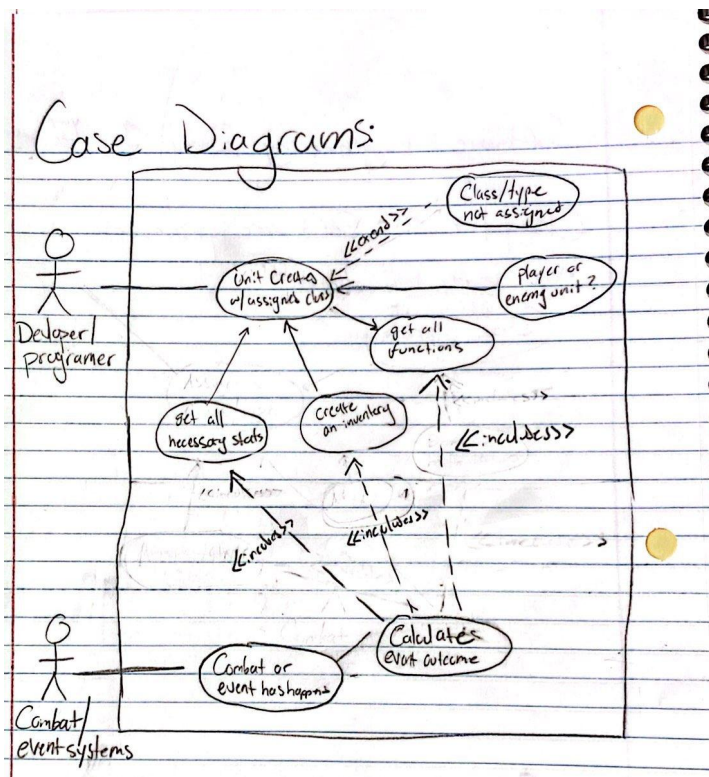 Case Diagrams:
Class/type
not assigned
<<exend>>
Unit Creates
w/assigned class
player or
enemy unit?
Devloper/
programer
get all
functions
get all
necessary stats
Create
an inventory
<<inculdes>>
<<inculdes>>
<<inculdes>>
Calculates
event outcome
Combat or
event has happens
Combat/
event systems